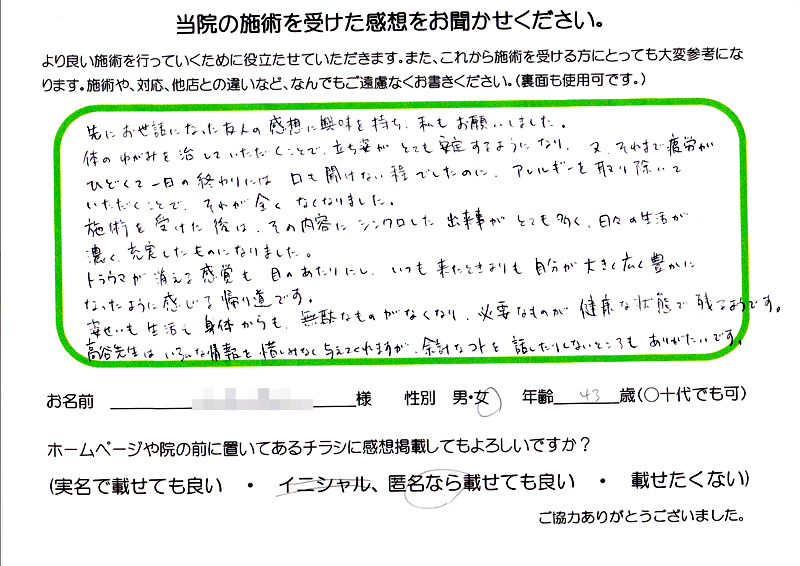 当院の施術を受けた感想をお聞かせください。
より良い施術を行っていくために役立たせていただきます。また、これから施術を受ける方にとっても大変参考にな
ります。施術や、対応、他店との違いなど、なんでもご遠慮なくお書きください。（裏面も使用可です。）
先にお世話になった友人の感想に興味を持ち、私もお願いしました。
体のゆがみを治していただくことで、立ち姿がとても安定するようになり、又、それまで疲労が
ひどくて一日の終わりには口も開けない程でしたのに、アレルギーを取り除いて
いただくことで、それが全くなくなりました。
施術を受けた後は、その内容にシンクロした出来事がとても多く、日々の生活が
濃く、充実したものになりました。
トラウマが消える感覚も目のあたりにし、いつも来たときよりも自分が大きく広く豊かに
なったように感じる帰り道です。
姿せいも生活も身体からも、無駄なものがなくなり、必要なものが健康な状態で残るようです。
高谷先生はいろんな情報を惜しみなく与えてくれますが、余計なコトを話したりしないところもありがたいです。
お名前 様 性別 男・女 年齢 43 歳（〇十代でも可）
ホームページや院の前に置いてあるチラシに感想掲載してもよろしいですか？
（実名で載せても良い ・ イニシャル、匿名なら載せても良い ・ 載せたくない）
ご協力ありがとうございました。